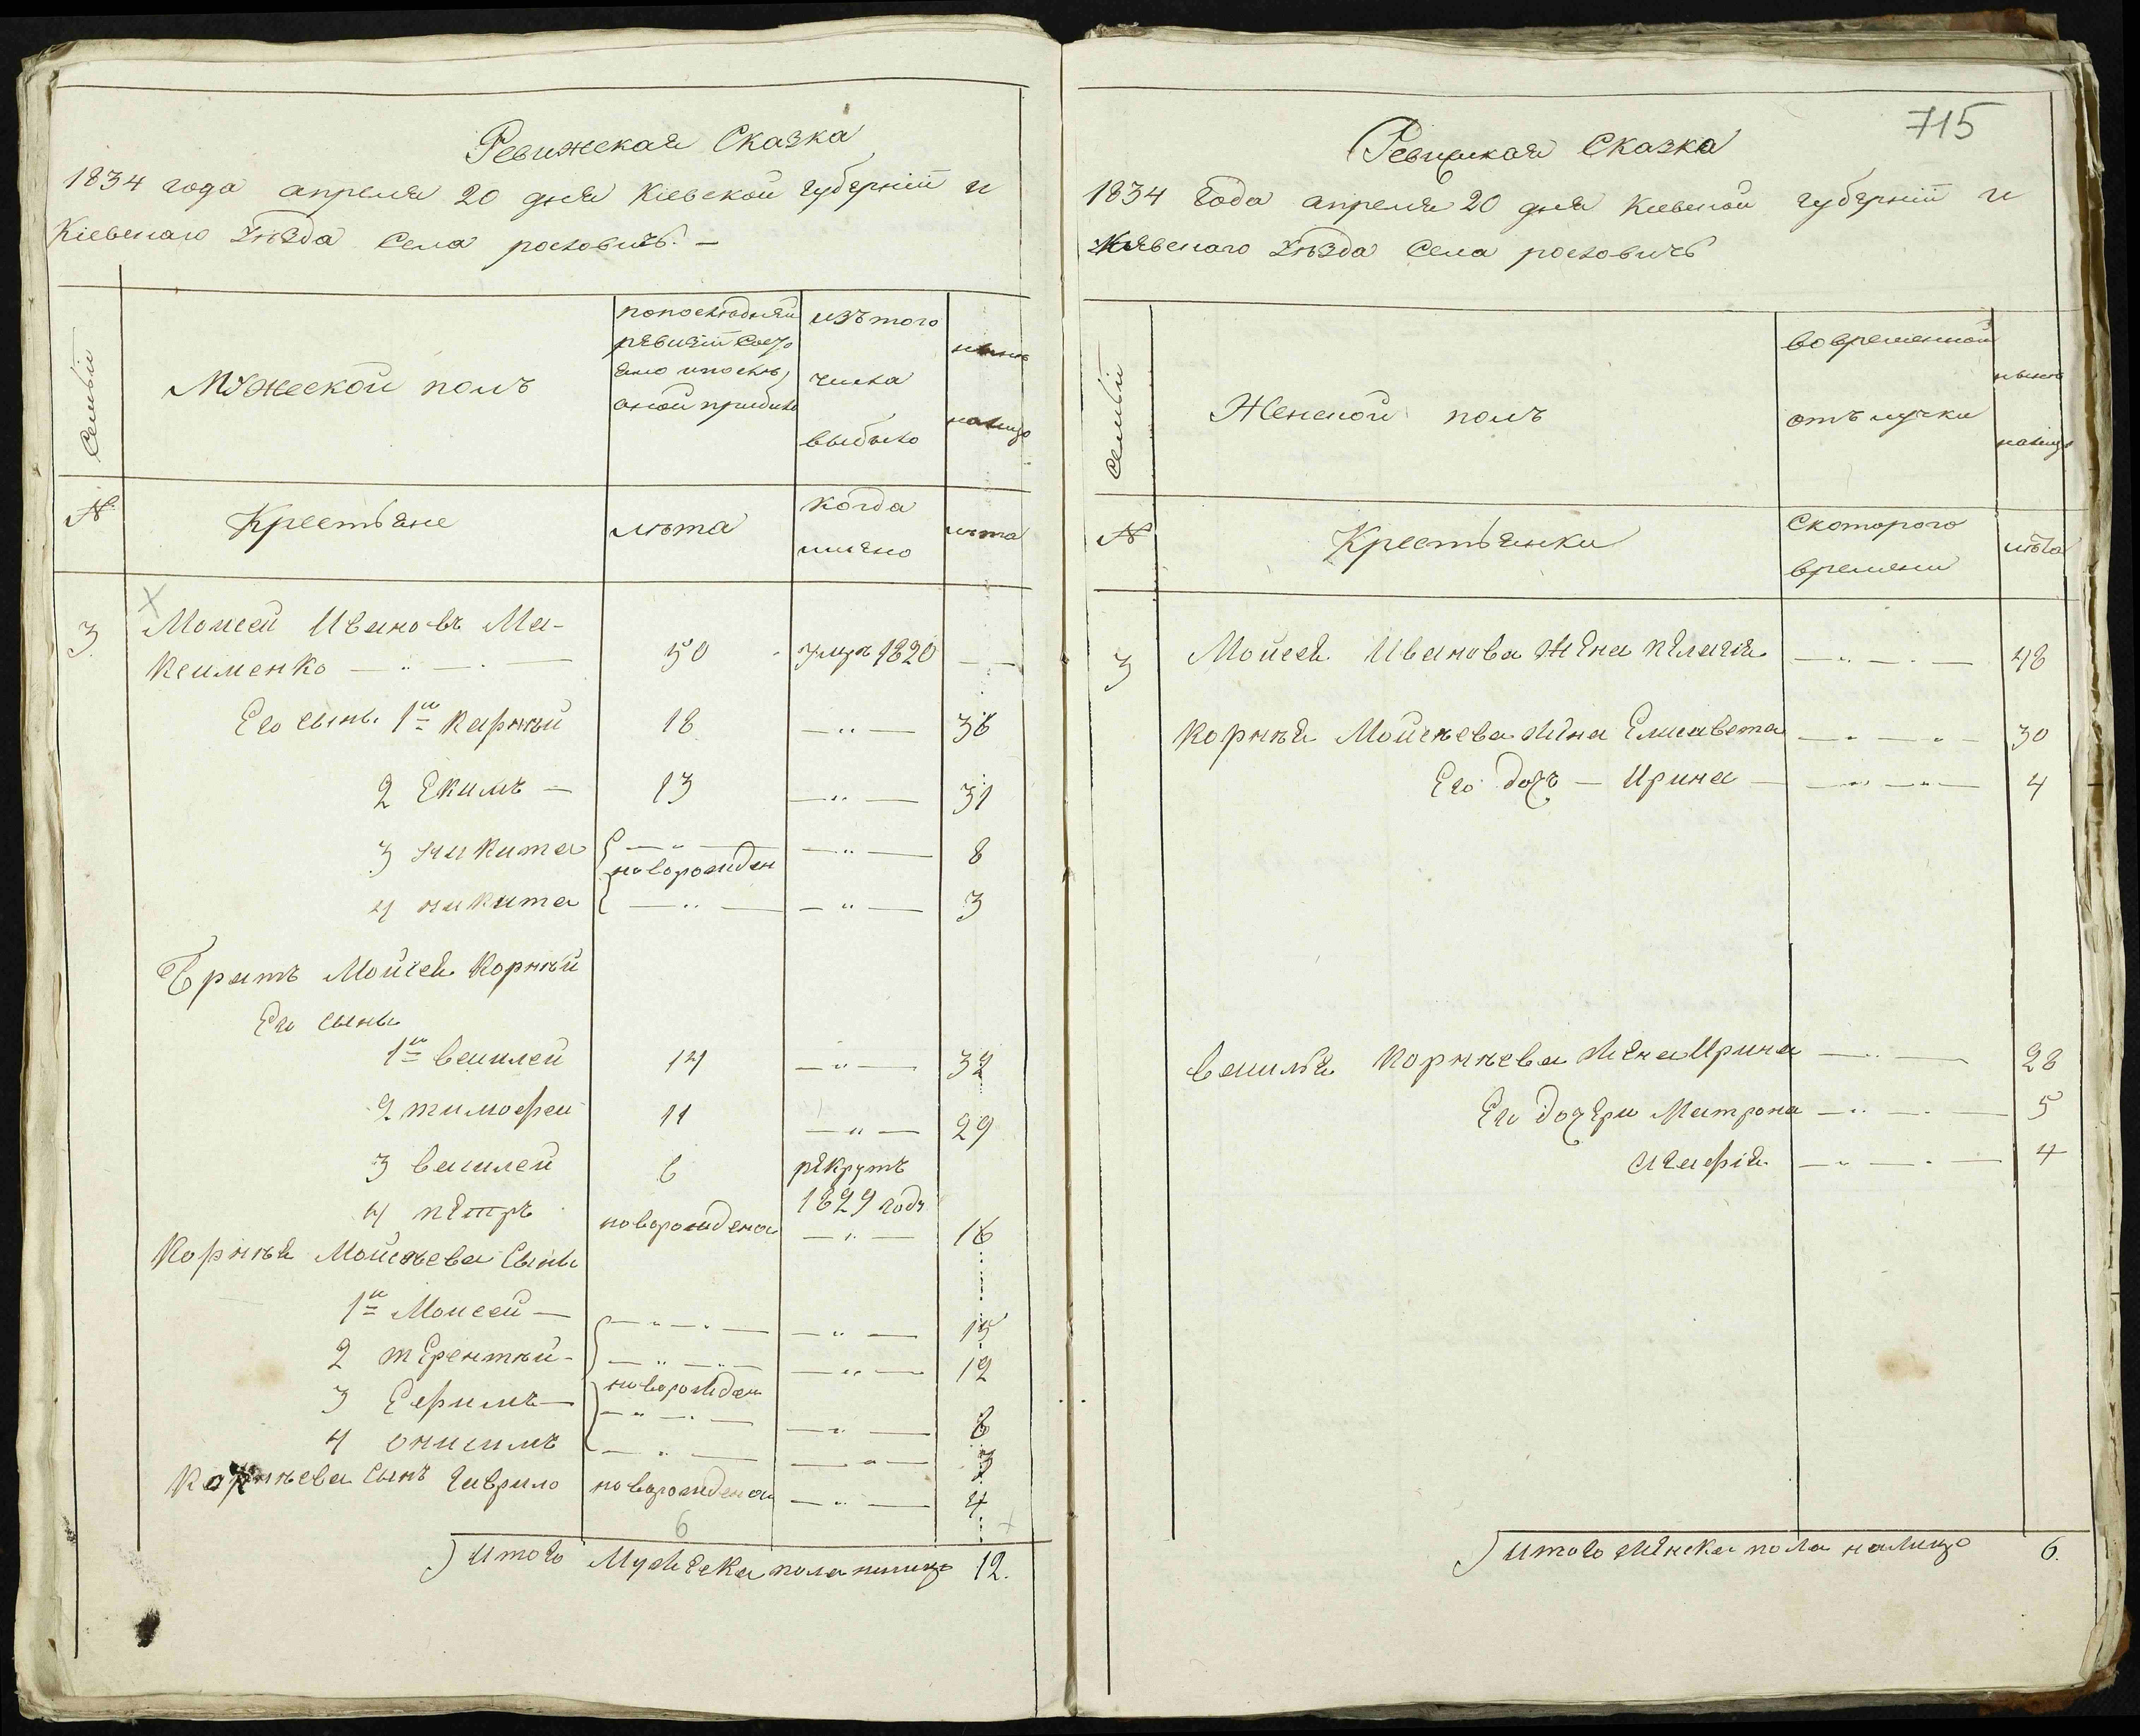 Ревижская Сказка
1834 года апреля 20 дня Кіевской губерніи и
Кіевскаго уѣзда Села росховичъ. —
Семьи
Мужеской полъ
попослѣдней
ревизіи состо
яло ипослѣ
оной прибыло
изътого
числа
выбыло
нынѣ
налицо
№
Крестьяне
лѣта
когда
имяно
лѣта
3
Моисей Ивановъ Ма-
ксименко — " — . — 50 умръ 1820 — " —
Его сынъ 1й Карнѣй 18 — " — 36
2 Екимъ — 13 — " — 31
3 никита — " — — " — 8
новорожден
4 никита — " — — " — 3
Братъ Мойсея Корнѣй
Его сыны
1й василей 14 — " — 32
2 тимофей 11 — " — 29
3 василей 6 рекрутъ
1829 годъ
4 петръ новорожденой — " — 16
Корнѣя Мойсѣева Сыны
1й Моисей — — " — " — — " — 15
2 терентѣй — — " — " — — " — 12
новорожден
3 Ефимъ — — " — " — — " — 8
4 онисимъ — " — — " — 3
Корнѣева сынъ Гаврило новорожденой — " — 4
6
Итого Мужеска пола налицо 12.
715
Ревижская Сказка
1834 года апреля 20 дня Кіевской губерніи и
Кіевскаго уѣзда Села росховичъ
Семьи
Женской полъ
вовременной
отълучки
нынѣ
налицо
№
Крестьянки
Скоторого
времени
лѣта
3
Мойсея Иванова жена пелагія — " — . — 48
Корнѣя Мойсѣева жена Елисавета — " — " — 30
Его дочь — Ирина — — " — " — 4
василья Корнѣева жена Ирина — " — 28
Его дочери Матрона — " — . — 5
Агафія — " — . — 4
Итого женска пола налицо 6.